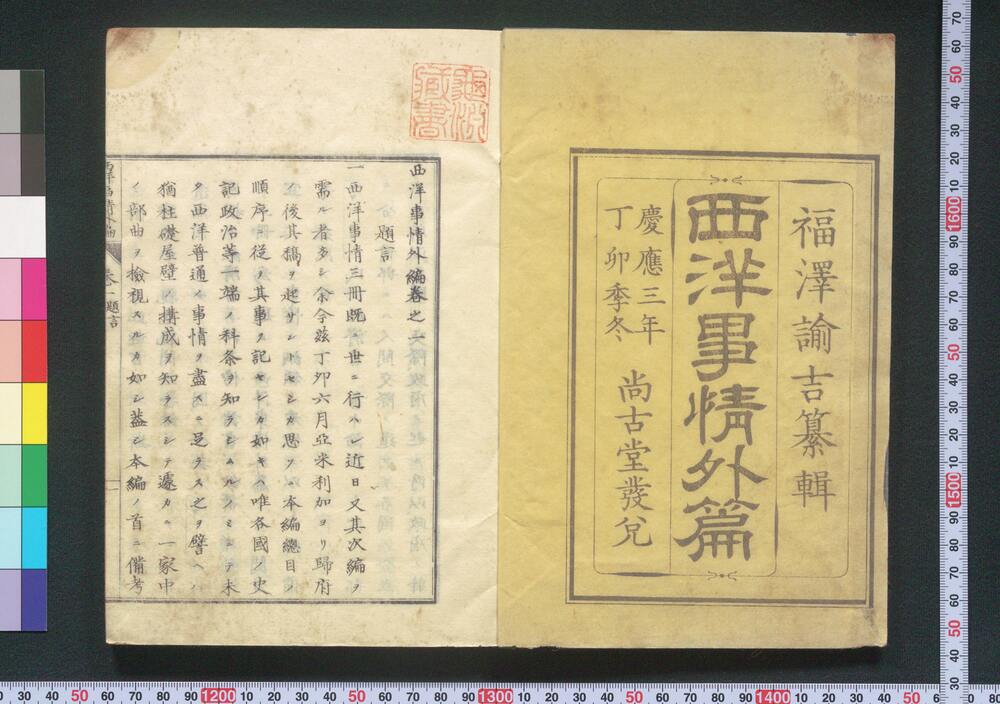 福澤諭吉纂輯
西洋事情外篇
慶應三年
丁卯季冬
尚古堂發兌
西洋事情外編卷之一
題言
一西洋事情三冊既ニ世ニ行ハレ近日又其次編ヲ
需ル者多シ余今茲丁卯六月亞米利加ヨリ歸府
後其稿ヲ起サントセシカ思フニ本編總目ノ
順序ニ從ヲ其事ヲ記セシカ如キハ唯各國ノ史
記政治等一端ノ科条ヲ知ラシムルノミニテ未
タ西洋普通ノ事情ヲ盡スニ足ラス之ヲ譬ヘハ
猶柱礎屋壁ノ構成ヲ知ラスシテ遽カニ一家中
ノ部曲ヲ撿視スルカ如シ蓋シ本編ノ首ニ備考
卷一 題言
一